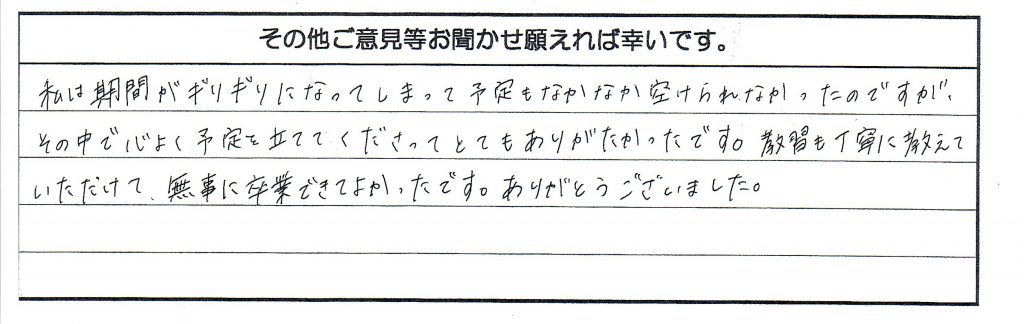 その他ご意見等お聞かせ願えれば幸いです。
私は期間がギリギリになってしまって予定もなかなか空けられなかったのですが、
その中で心よく予定を立ててくださってとてもありがたかったです。教習も丁寧に教えて
いただけて、無事に卒業できてよかったです。ありがとうございました。